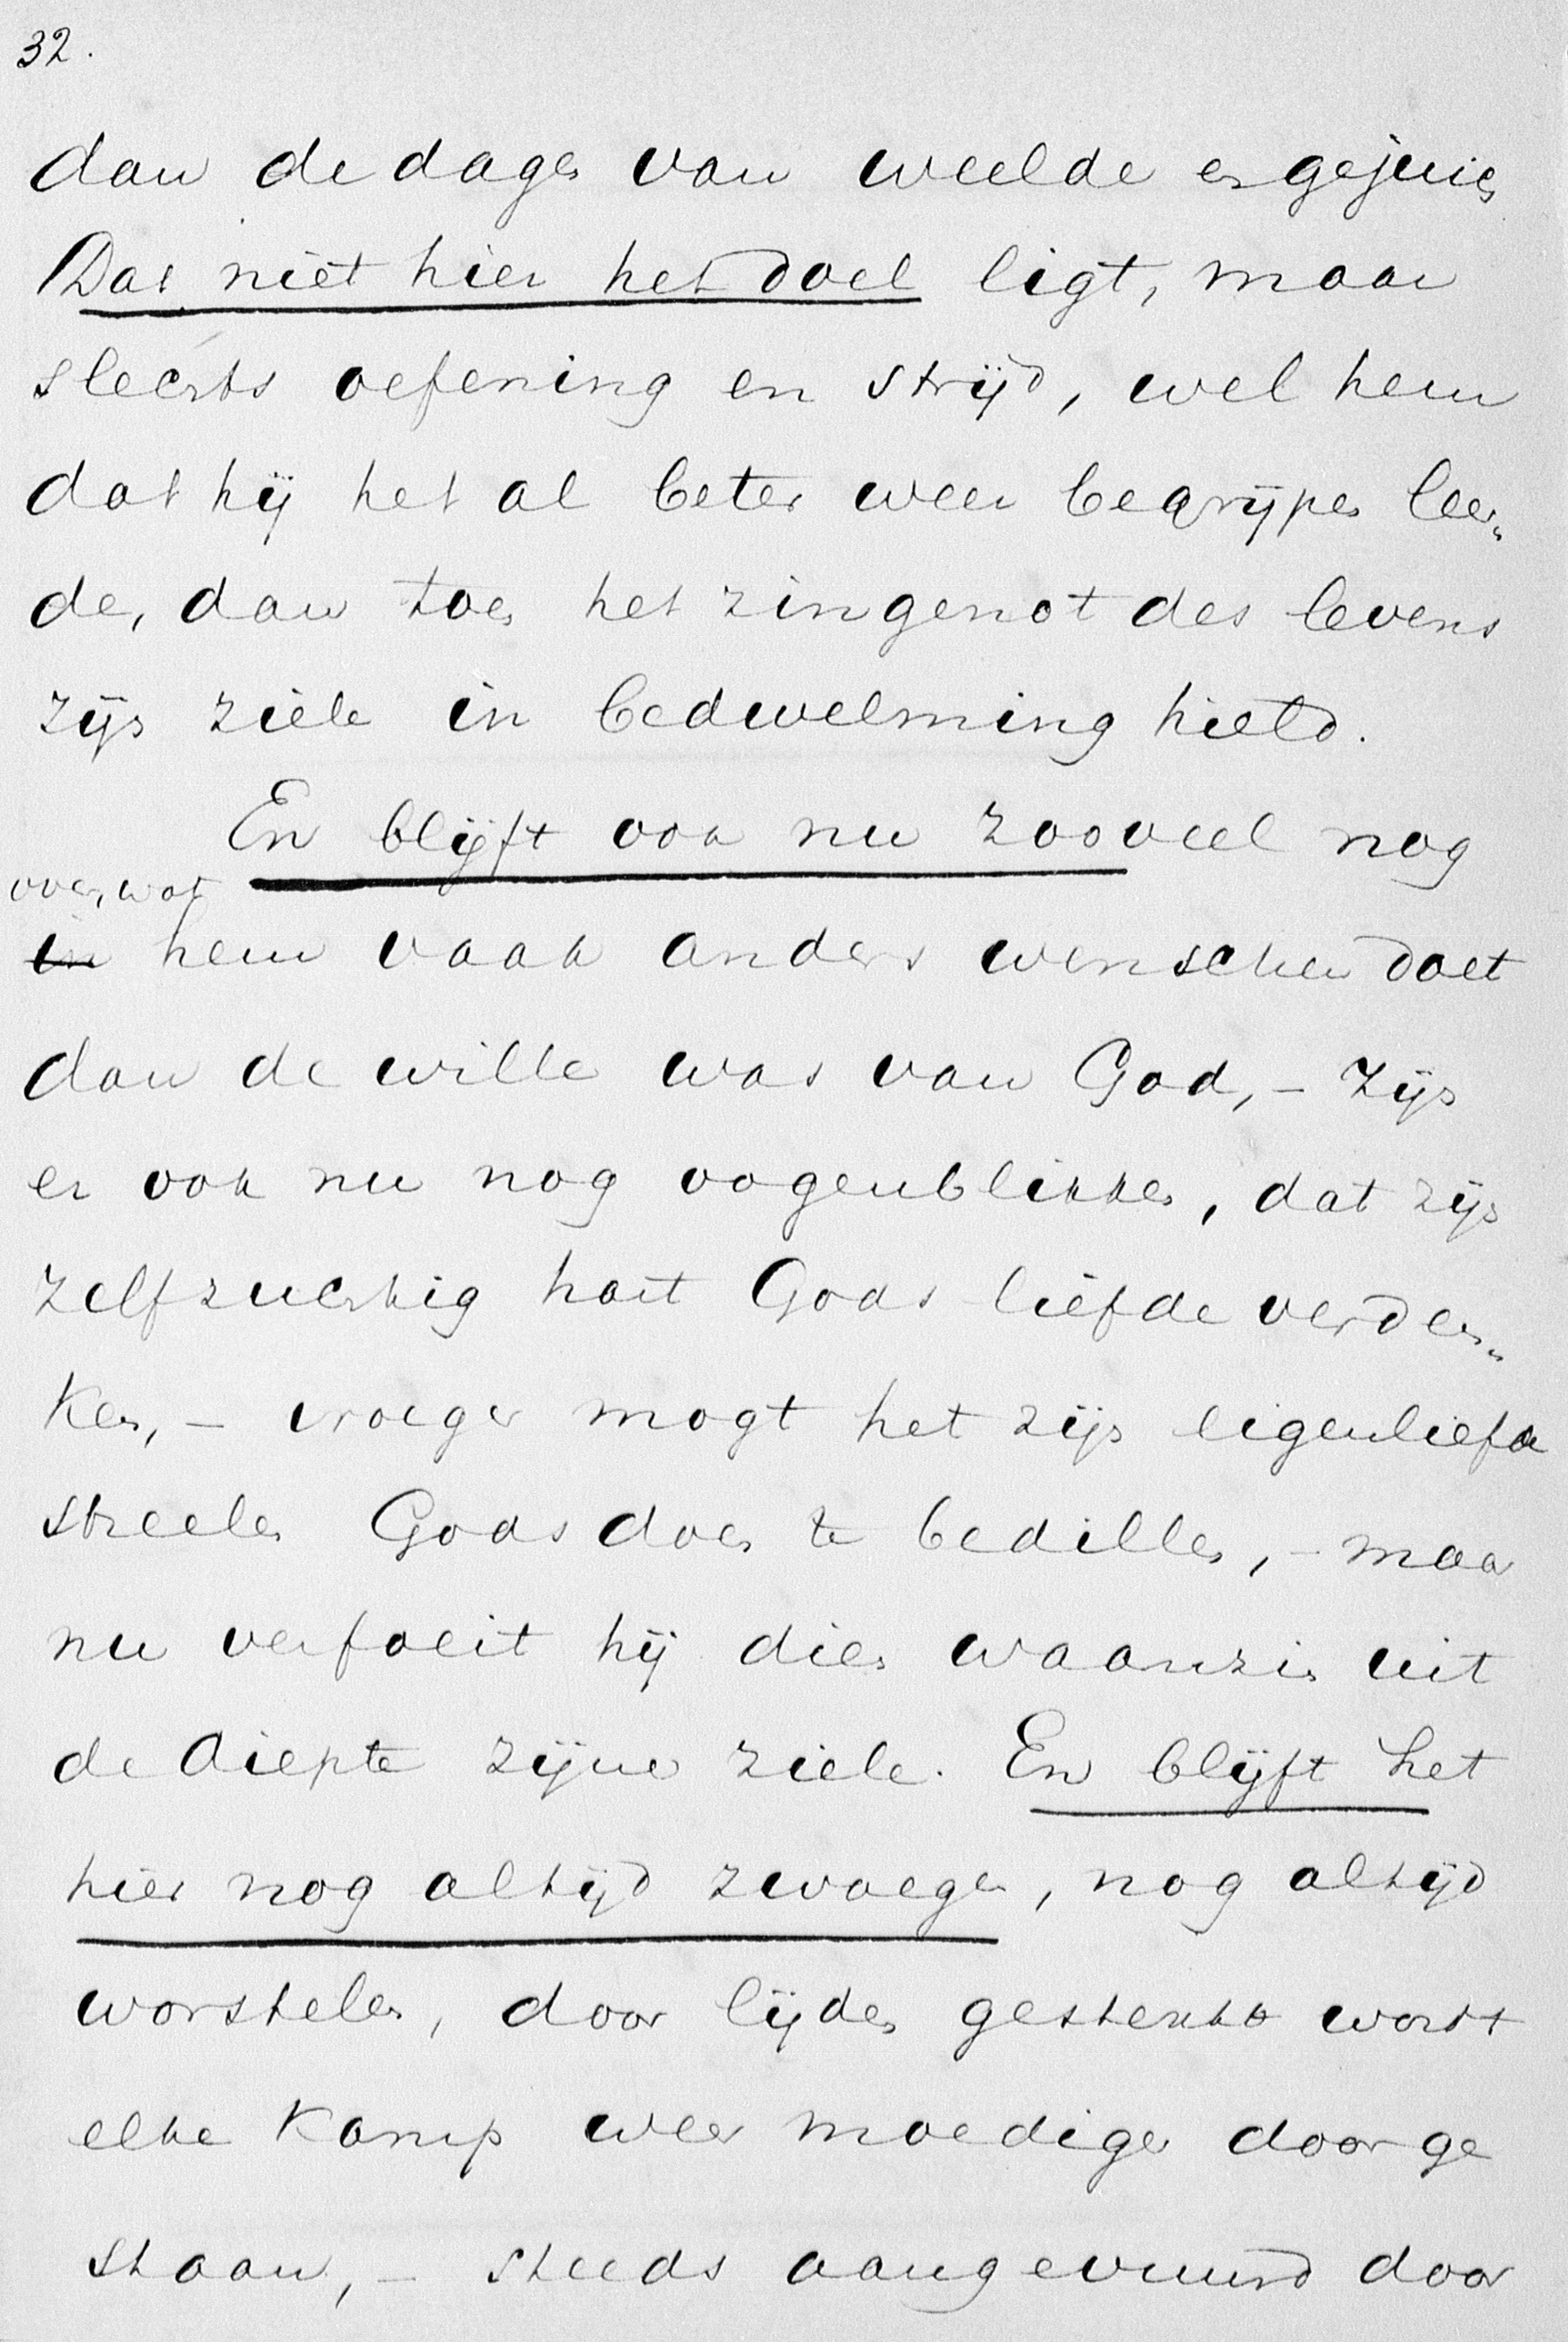 32.
dan de dagen van weelde en gejuich
Dat niet hier het doel ligt, maar
slechts oefening en strijd, wel hem
dat hij het al beter weer begrijpen leer„
de, dan toen het zingenot des levens
zijn ziele in bedwelming hield.
En blijft ook nu zooveel nog
over, wat
in hem vaak anders wenschen doet
dan de wille was van God, – zijn
er ook nu nog oogenblikken, dat zijn
zelfzuchtig hart Gods liefde verden„
ken, – vroeger mogt het zijn eigenliefde
streelen Gods doen te bedillen, – maar
nu verfoeit hij dien waanzin uit
de diepte zijner ziele. En blijft het
hier nog altijd zwoegen, nog altijd
worstelen, door lijden gesterkt wordt
elke kamp weer moediger doorge
staan, – steeds aangevuurd door